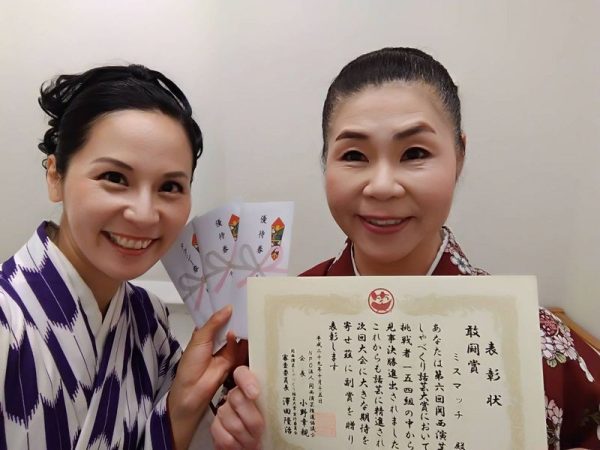 優待券
優待券
表彰状
敢闘賞
ミスマッチ 殿
あなたは第六回関西演芸
しゃべくり話芸大賞において
挑戦者一五四組の中から
見事決勝進出されました
これからも話芸に精進され
次回大会に大きな期待を
寄せ茲に副賞を贈り
表彰します
平成二十九年十月十五日
NPO法人関西演芸推進協議会
会長 小野幸親
審査委員長 澤田隆治